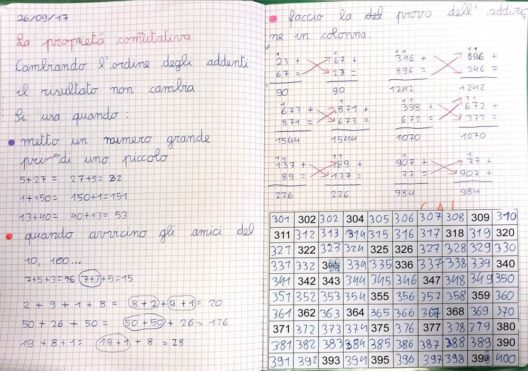 26/09/17
La proprietà commutativa
Cambiando l'ordine degli addenti
il risultato non cambia
Si usa quando :
metto un numero grande
prima di uno piccolo
5+27 = 27+5= 32
1+150= 150+1=151
13+40= 40+13= 53
quando avvicino gli amici del
10, 100...
7+5+3= 7+3+5=15
2 + 9 + 1 + 8 = 8+2+9+1= 20
50 + 26 + 50 = 50+50 + 26 = 126
19 + 8 + 1 = 19+1 + 8 = 28
faccio la prova dell' addizio
ne in colonna.
23 + 67 + 346 + 896 +
67 = 23 = 896 = 346 =
90 90 1242 1242
673 + 871 + 398 + 672 +
871 = 673 = 672 =
1544 1544 1070 1070
137 + 89 + 907 + 77 +
89 = 137 = 77 = 907 =
226 226 984 984
301 302 303 304 305 306 307 308 309 310
311 312 313 314 315 316 317 318 319 320
321 322 323 324 325 326 327 328 329 330
331 332 334 335 336 337 338 339 340
341 342 343 344 345 346 347 348 349 350
351 352 353 354 355 356 357 358 359 360
361 362 363 364 365 366 367 368 369 370
371 372 373 374 375 376 377 378 379 380
381 382 383 384 385 386 387 388 389 390
391 392 393 394 395 396 397 398 399 400